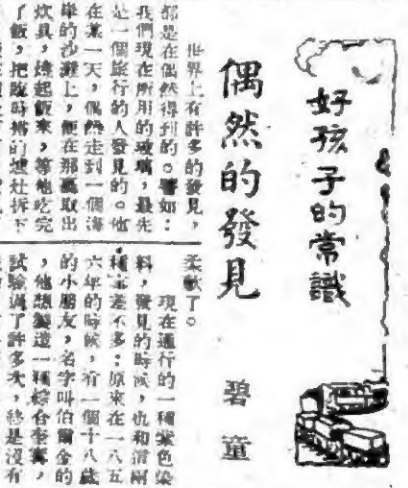 好孩子的常識
偶然的發見
碧童
世界上有許多的發見,
都是在偶然得到的。譬如:
我們現在所用的玻璃,最先
是一個旅行的人發見的。他
在某一天,偶然走到一個海
岸的沙灘上,便在那裏取出
炊具,燒起飯來,等他吃完
了飯,把臨時搭的爐灶拆下
柔軟了。
現在通行的一種紫色染
料,發見的時候,也和這兩
種差不多;原來在一八五
六年的時候,有一個十八歲
的小朋友,名字叫伯爾金的
,他想製造一種綜合奎寧,
試驗過了許多次,終是沒有